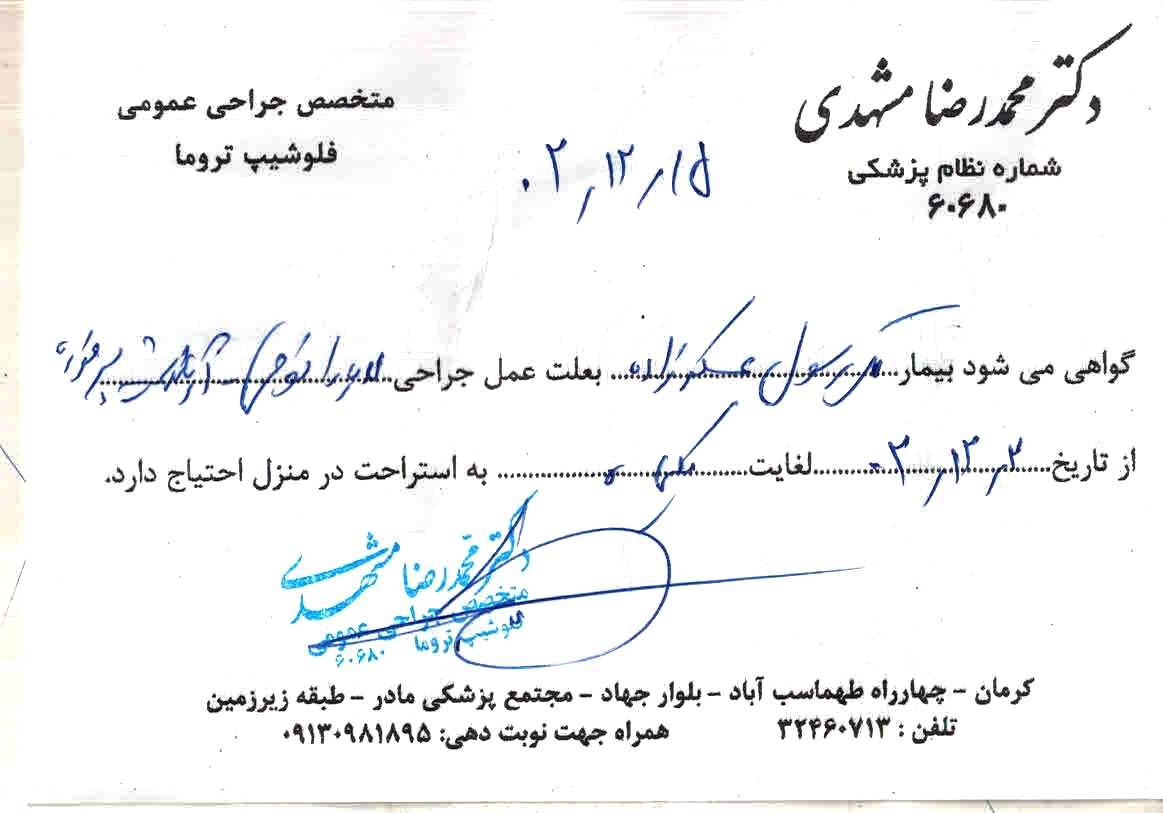 دکتر محمدرضا مشهدی
شماره نظام پزشکی
۶۰۶۸۰
متخصص جراحی عمومی
فلوشیپ تروما
۰۲/۱۲/۱۵
گواهی می شود بیمار رسول عسکرزاده بعلت عمل جراحی
از تاریخ ۰۲/۱۲/۲ لغایت به استراحت در منزل احتیاج دارد.
دکتر محمدرضا مشهدی
متخصص جراحی عمومی
فلوشیپ تروما
۶۰۶۸۰
کرمان - چهارراه طهماسب آباد - بلوار جهاد - مجتمع پزشکی مادر - طبقه زیرزمین
تلفن : ۳۲۴۶۰۷۱۳ همراه جهت نوبت دهی: ۰۹۱۳۰۹۸۱۸۹۵